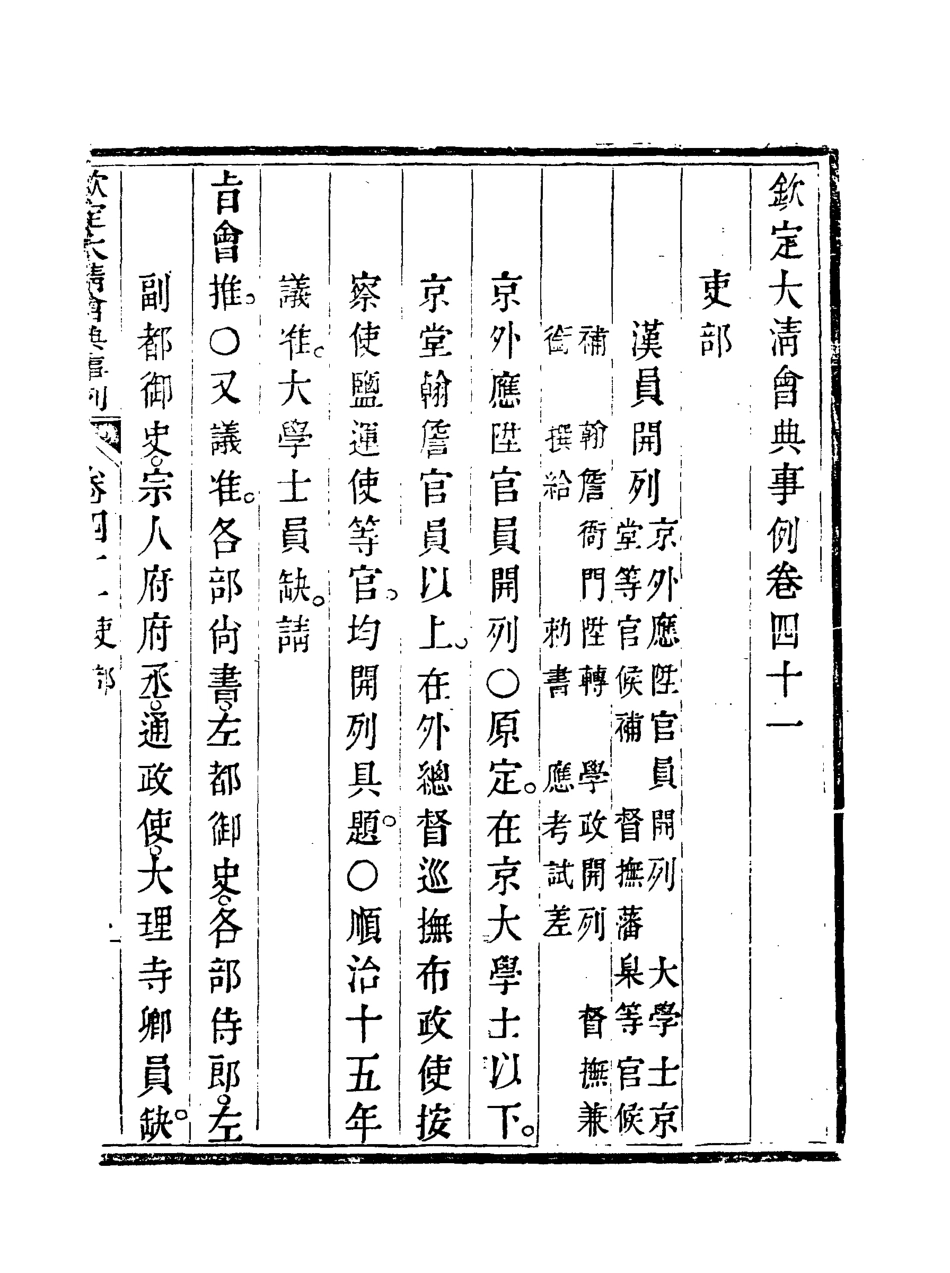 欽定大清會典事例卷四十一
吏部
漢員開列
京外應陞官員開列　大學士京
堂等官候補　督撫藩臬等官候
補　翰詹衙門陞轉　學政開列　督撫兼
銜　撰給　勅書　應考試差
京外應陞官員開列○原定。在京大學士以下。
京堂翰詹官員以上。在外總督巡撫布政使按
察使鹽運使等官。均開列具題。○順治十五年
議准。大學士員缺。請
旨會推。○又議准。各部尚書。左都御史。各部侍郎。左
副都御史。宗人府府丞。通政使。大理寺卿員缺。
欽定大清會典事例　卷四十一　吏部　一